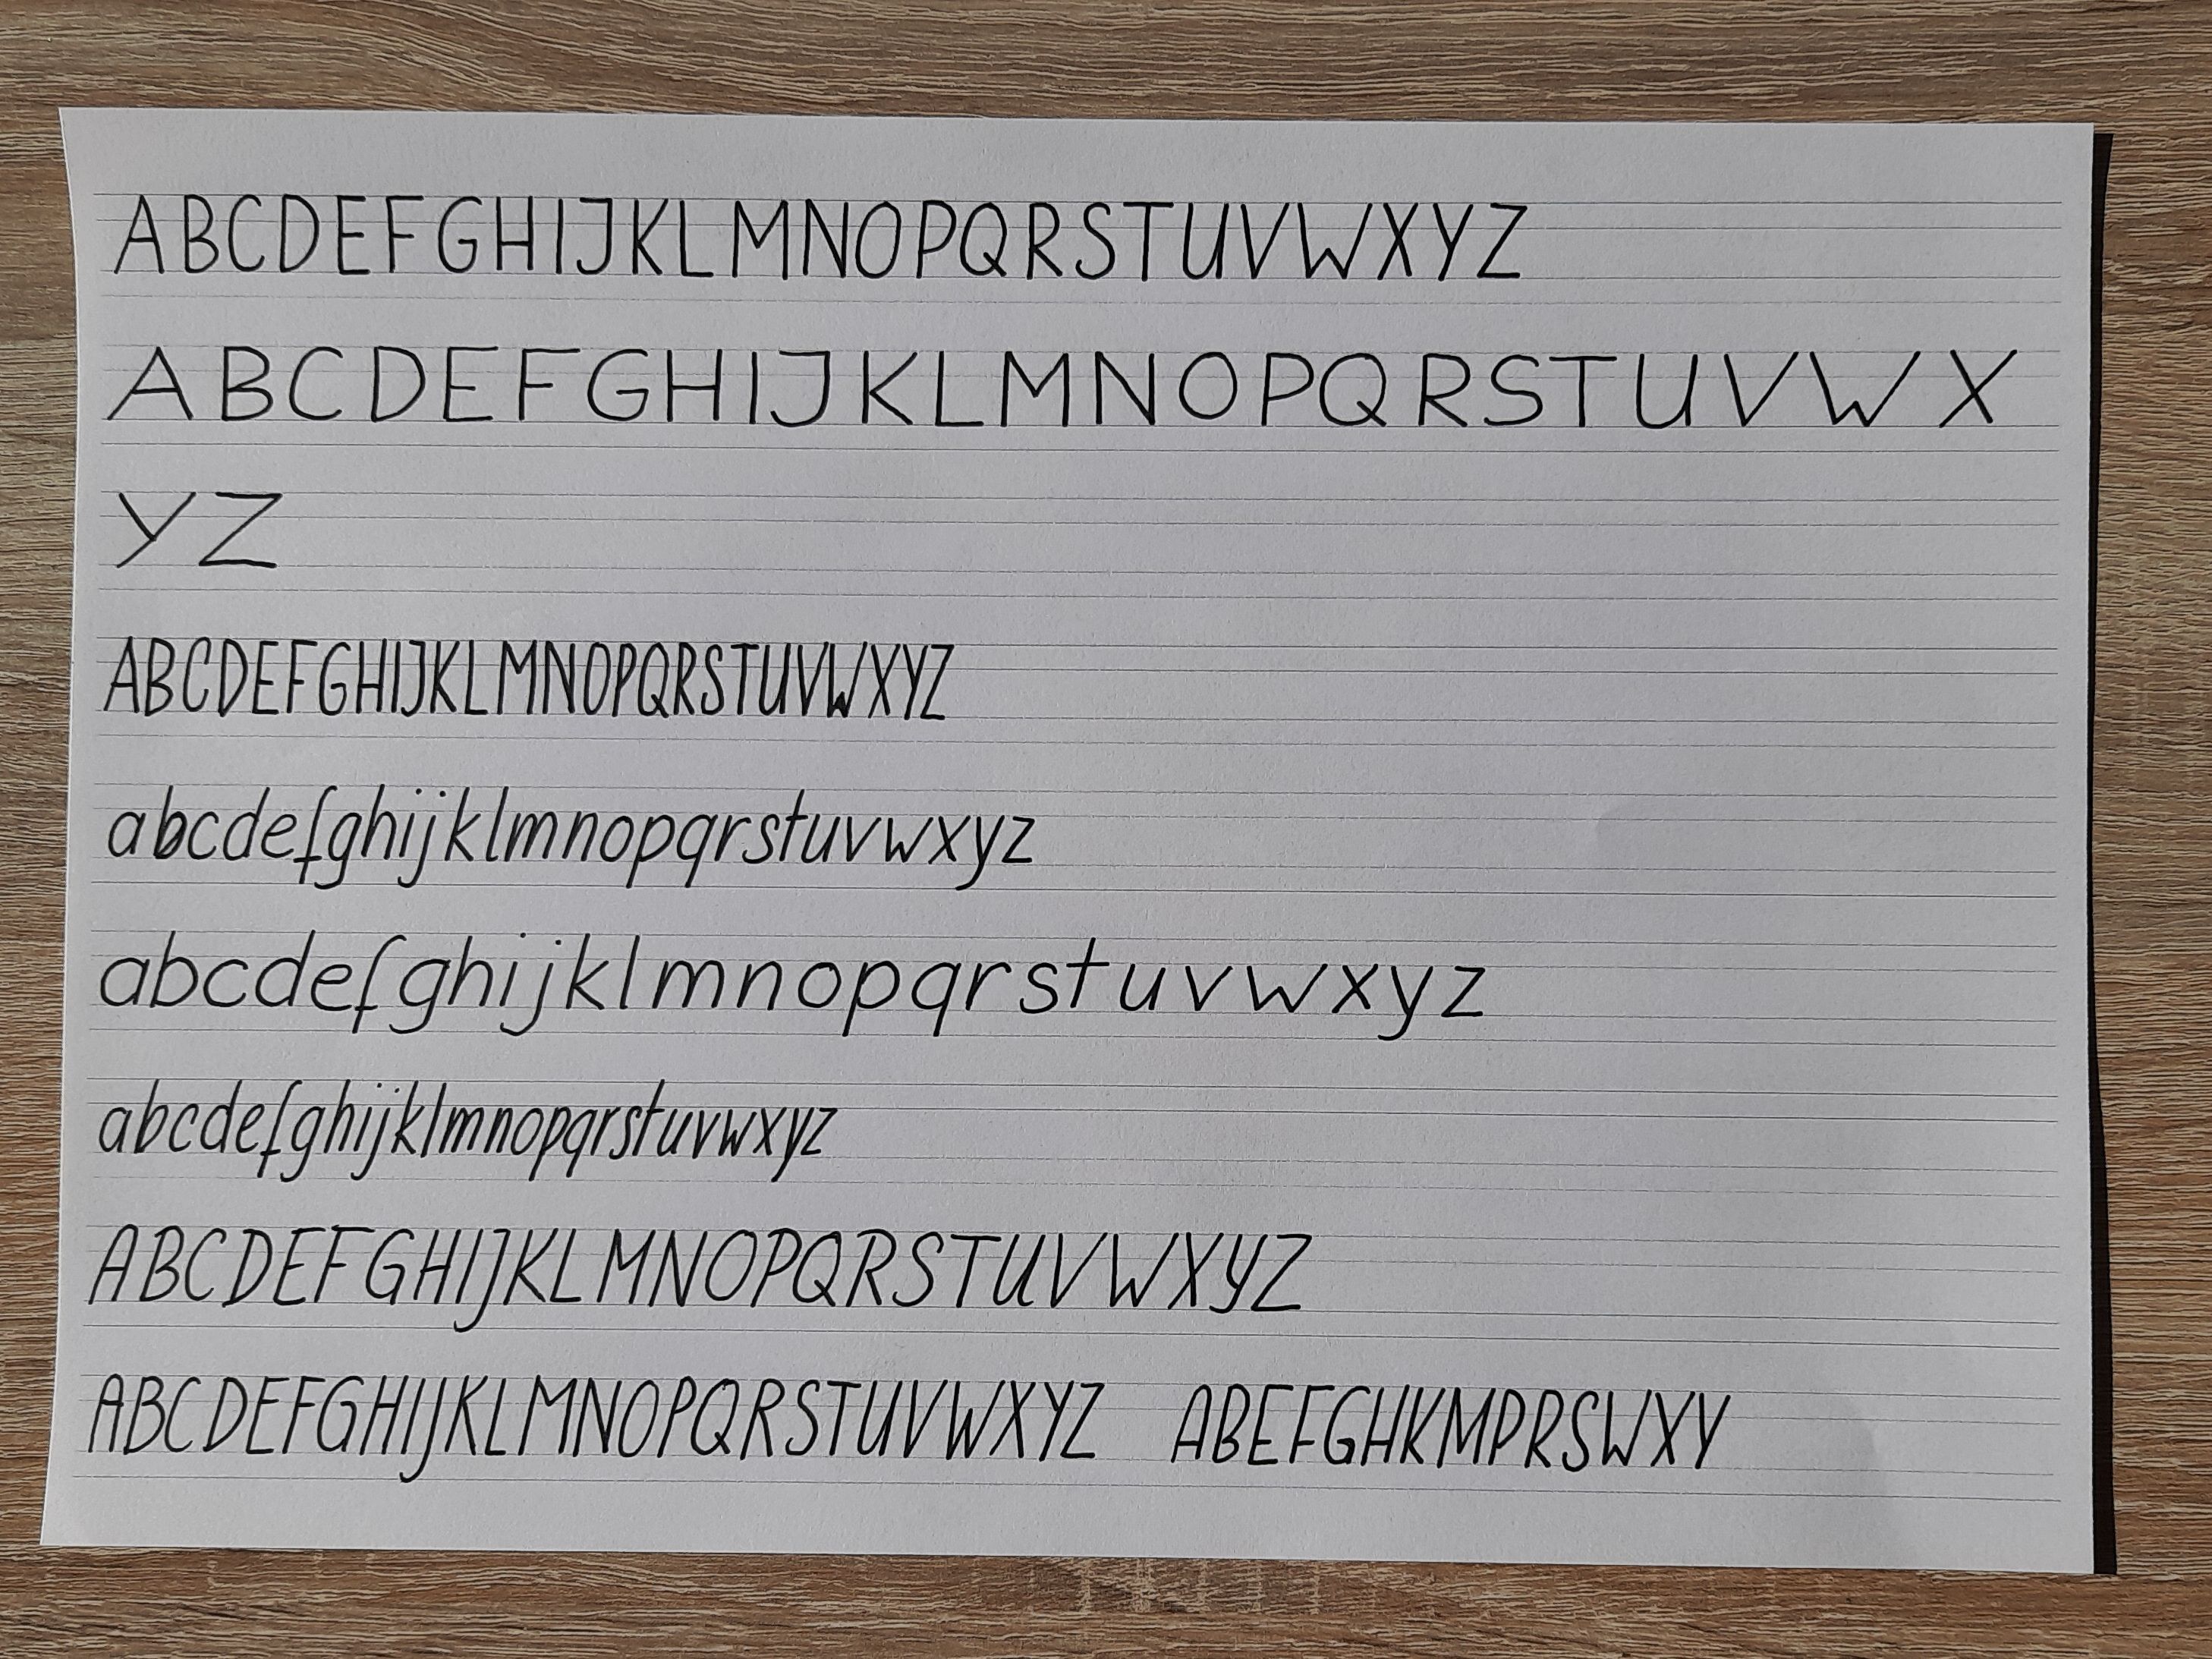 ABCDEFGHIJKLMNOPQRSTUVWXYZ
ABCDEFGHIJKLMNOPQRSTUVWX
YZ
ABCDEFGHIJKLMNOPQRSTUVWXYZ
abcdefghijklmnopqrstuvwxyz
abcdefghijklmnopqrstuvwxyz
abcdefghijklmnopqrstuvwxyz
ABCDEFGHIJKLMNOPQRSTUVWXYZ
ABCDEFGHIJKLMNOPQRSTUVWXYZ ABEFGHKMPRSWXY